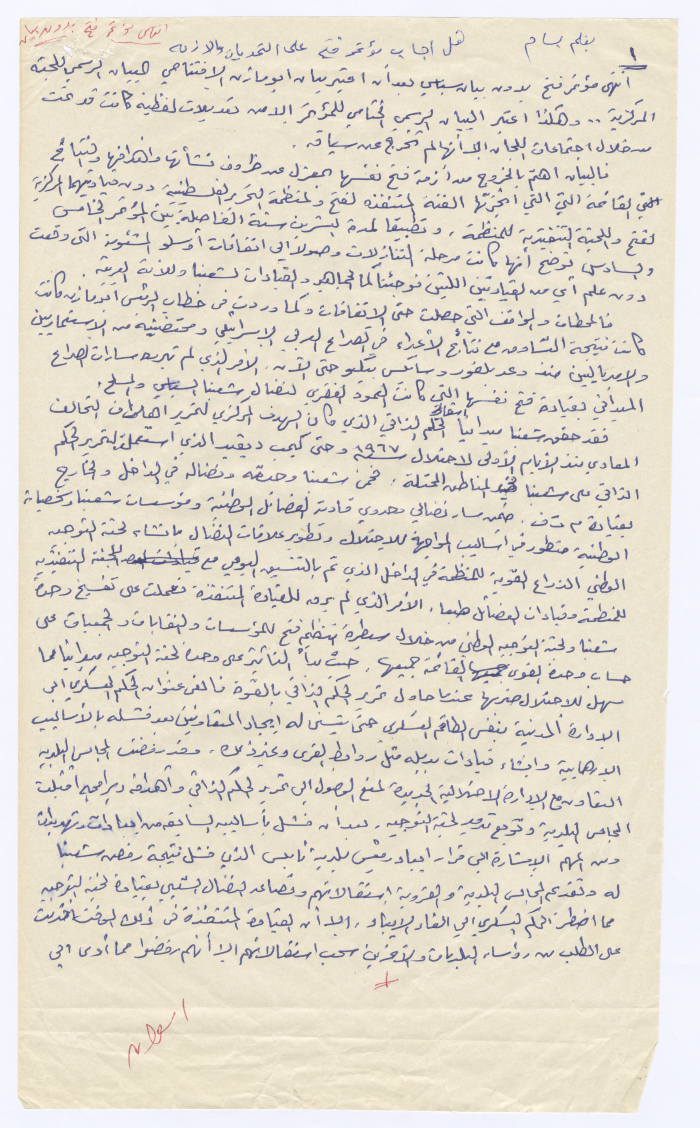 انتهى مؤتمر فتح بدون بيان سياسي
١
بقلم بسام
هل أجاب مؤتمر فتح على التحديات والأزمة
انتهى مؤتمر فتح بدون بيان سياسي بعد أن اعتبر بيان ابو مازن الافتتاحي البيان الرسمي للجنة
المركزية .. وهكذا اعتبر البيان الرسمي الختامي للمؤتمر الا من تعديلات لفظية كانت قد تمت
من خلال اجتماعات اللجان الا أنها لم تخرج عن سياقه .
فالبيان اهتم بالخروج من أزمة فتح نفسها بمعزل عن ظروف نشأتها وأهدافها والنتائج
القائمة التي التي أنجزتها الفئة المتنفذة لفتح ولمنظمة التحرير الفلسطينية دون قيادتيهما المركزية
لفتح واللجنة التنفيذية للمنظمة . وتطبيقا لمدة العشرين سنة الفاصلة بين المؤتمر الخامس
والسادس توضح أنها كانت مرحلة التنازلات وصولا الى اتفاقات أوسلو المشئومة التي وقعت
دون علم أي من القيادتين اللتين فوجئتا كما الجماهير والقيادات لشعبنا ولأمتنا العربية .
فالمحطات والمواقف التي حصلت حتى الاتفاقات وكما وردت في خطاب الرئيس أبو مازن كانت
كانت نتيجة التساوق مع نتائج الأعداء في الصراع العربي الاسرائيلي ومحتضنيه من الاستعماريين
والامبرياليين منذ وعد بلفور وسايكس بيكو حتى الآن . الأمر الذي لم تبرره مسارات الصراع
الميداني بقيادة فتح نفسها التي كانت العمود الفقري لنضال شعبنا السياسي والمسلح .
فقد حقق شعبنا ميدانيا افشال الحكم الذاتي الذي كان الهدف المركزي لتمرير أهداف التحالف
المعادي منذ الأيام الأولى لاحتلال سنة ١٩٦٧ وحتى كامب ديفيد الذي استعمل لتمرير الحكم
الذاتي على شعبنا في المناطق المحتلة . فمن شعبنا وحدته ونضاله في الداخل والخارج
بقيادة م ت ف . ضمن مسار نضالي وحدوي قادته الفصائل الوطنية ومؤسسات شعبنا وشخصياته
الوطنية متطور في أساليب المواجهة للاحتلال وتطوير علاقات النضال بانشاء لجنة التوجيه
الوطني الذراع القوية للمنظمة في الداخل الذي تم بالتنسيق اليومي مع اللجنة التنفيذية
للمنظمة وقيادات الفصائل طبعا . الأمر الذي لم يرق للقيادة المتنفذة فعملت على تفسيخ وحدة
شعبنا ولجنة التوجيه الوطني من خلال سيطرة تنظيم فتح للمؤسسات والنقابات والجمعيات على
حساب وحدة القوى القائمة جميعها . حيث بدأ التآمر على وحدة لجنة التوجيه ميدانيا مما
سهل للاحتلال ضربها عندما حاول تمرير الحكم الذاتي بالقوة فألغى عنوان الحكم العسكري الى
الادارة المدنية بنفس الطاقم العسكري حتى يتسنى له ايجاد المتعاونين بعد فشله بالأساليب
الارهابية وانشاء قيادات بديلة مثل روابط القرى وغيرها . وقد رفضت المجالس البلدية
التعاون مع الادارة الاحتلالية الجديدة لمنع الوصول الى تمرير الحكم الذاتي وأهدافه وبرامجه أقيلت
المجالس البلدية وتوقيع تدمير لجنة التوجيه . بعد أن فشل بأساليبه السابقة من ابعادات وتهديدات
ومن المهم الإشارة الى قرار ابعاد رئيس بلدية نابلس الذي فشل نتيجة رفض شعبنا
له وتقديم المجالس البلدية والقروية استقالاتهم وتصاعد النضال الشعبي بقيادة لجنة التوجيه
مما اضطر الحكم العسكري الى الغاء الابعاد . الا أن القيادة المتنفذة في ذلك الوقت أقدمت
على الطلب من رؤساء البلديات والآخرين سحب استقالاتهم الا أنهم رفضوا مما أدى الى